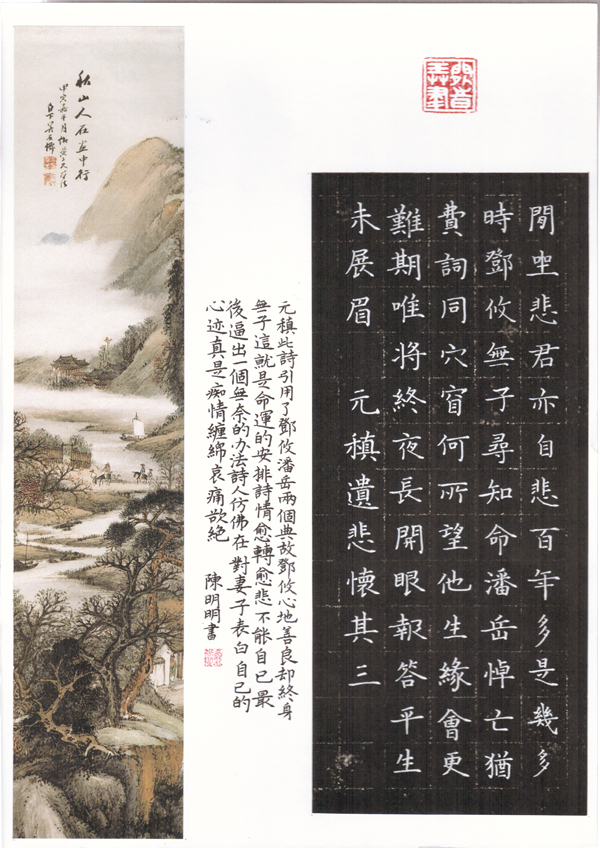 閒坐悲君亦自悲百年多是幾多
時鄧攸無子尋知命潘岳悼亡猶
費詞同穴窅何所望他生緣會更
難期唯將終夜長開眼報答平生
未展眉 元稹遺悲懷其三
元稹此詩引用了鄧攸潘岳兩個典故鄧攸心地善良却終身
無子這就是命運的安排詩情愈轉愈悲不能自已最
後逼出一個無奈的办法詩人仿佛在對妻子表白自己的
心迹真是痴情纏綿哀痛欲絕 陳明明書
秋山人在画中行
甲寅嘉平月
白下吴石僊